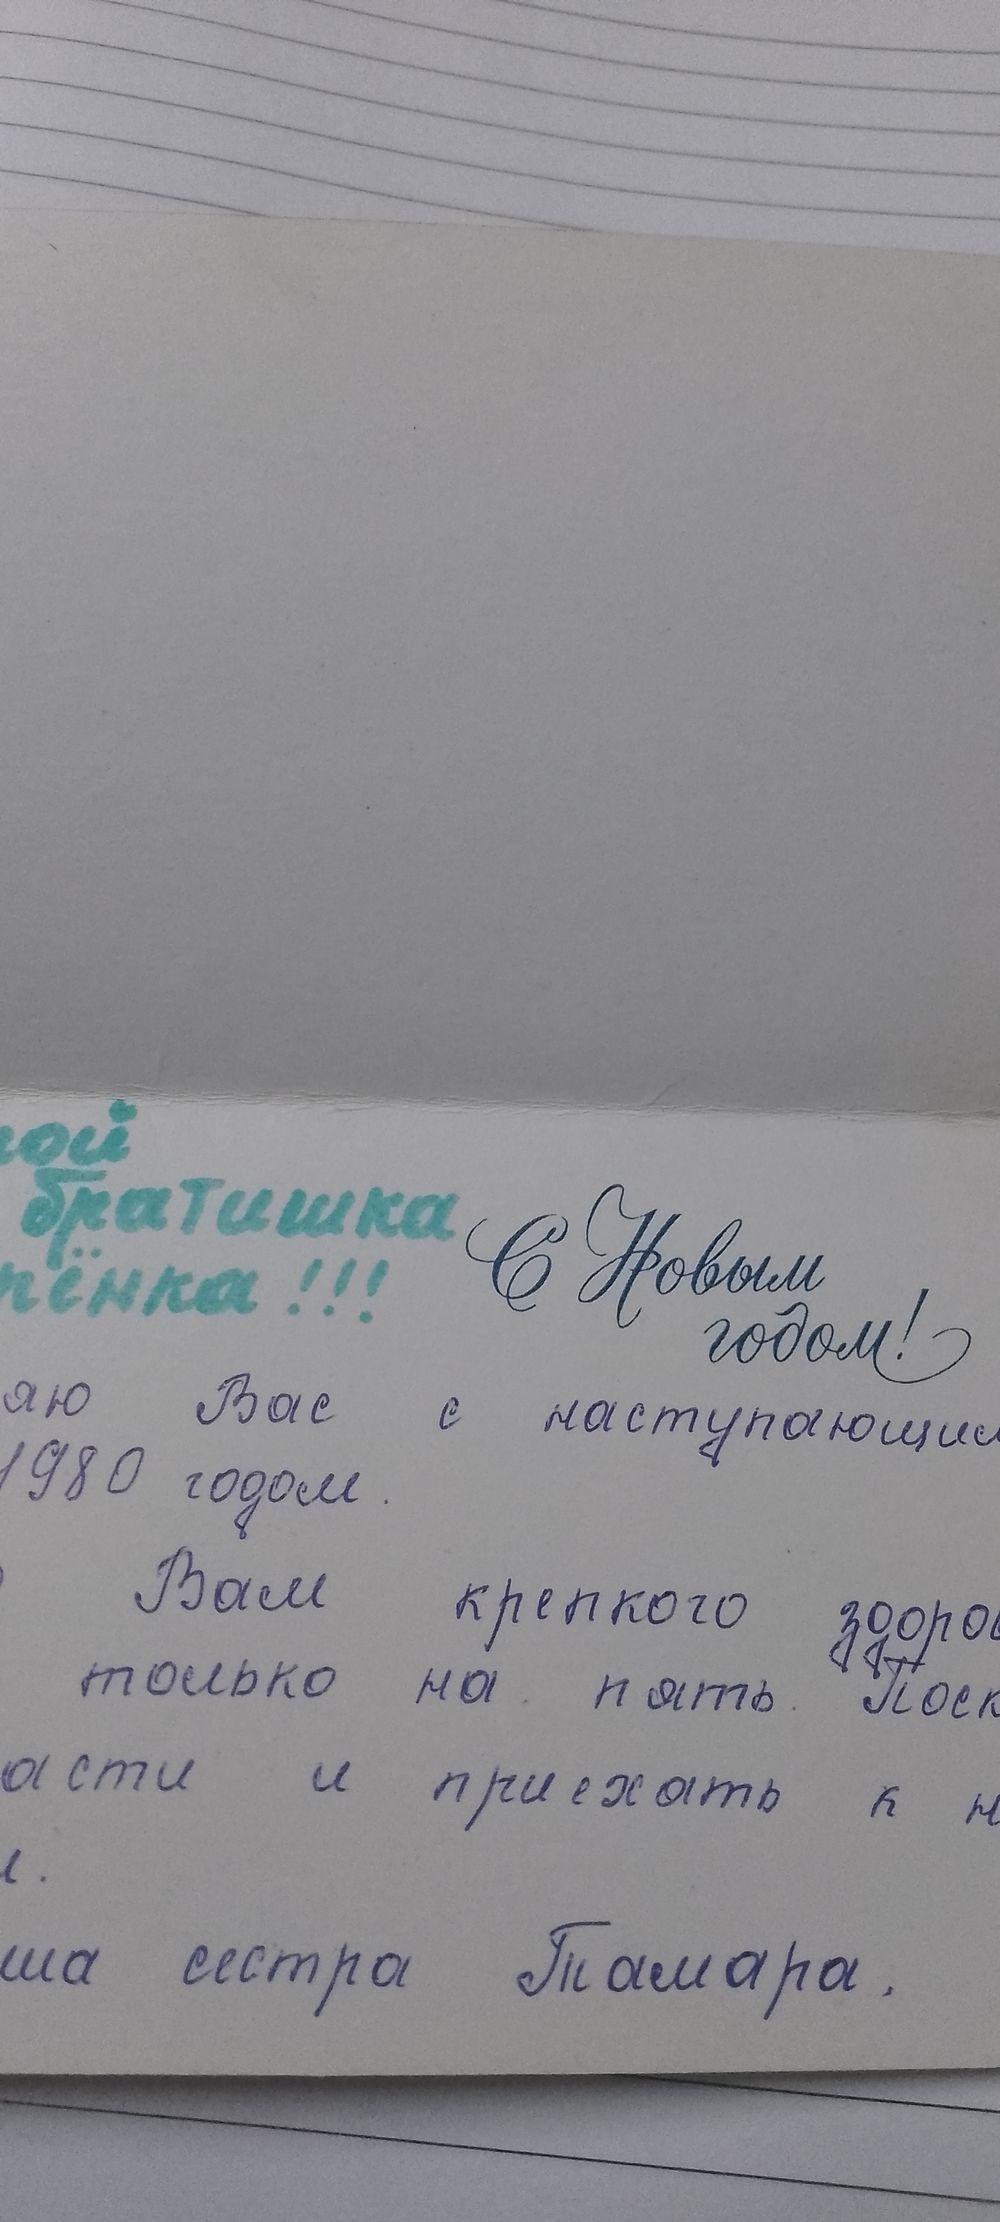 ной
братишка
пёнка!!!
С Новым
годом!
яю Вас с наступающим
1980 годом.
Вам крепкого здоров
только на пять. Поск
асти и приехать к н
и.
ша сестра Тамара.